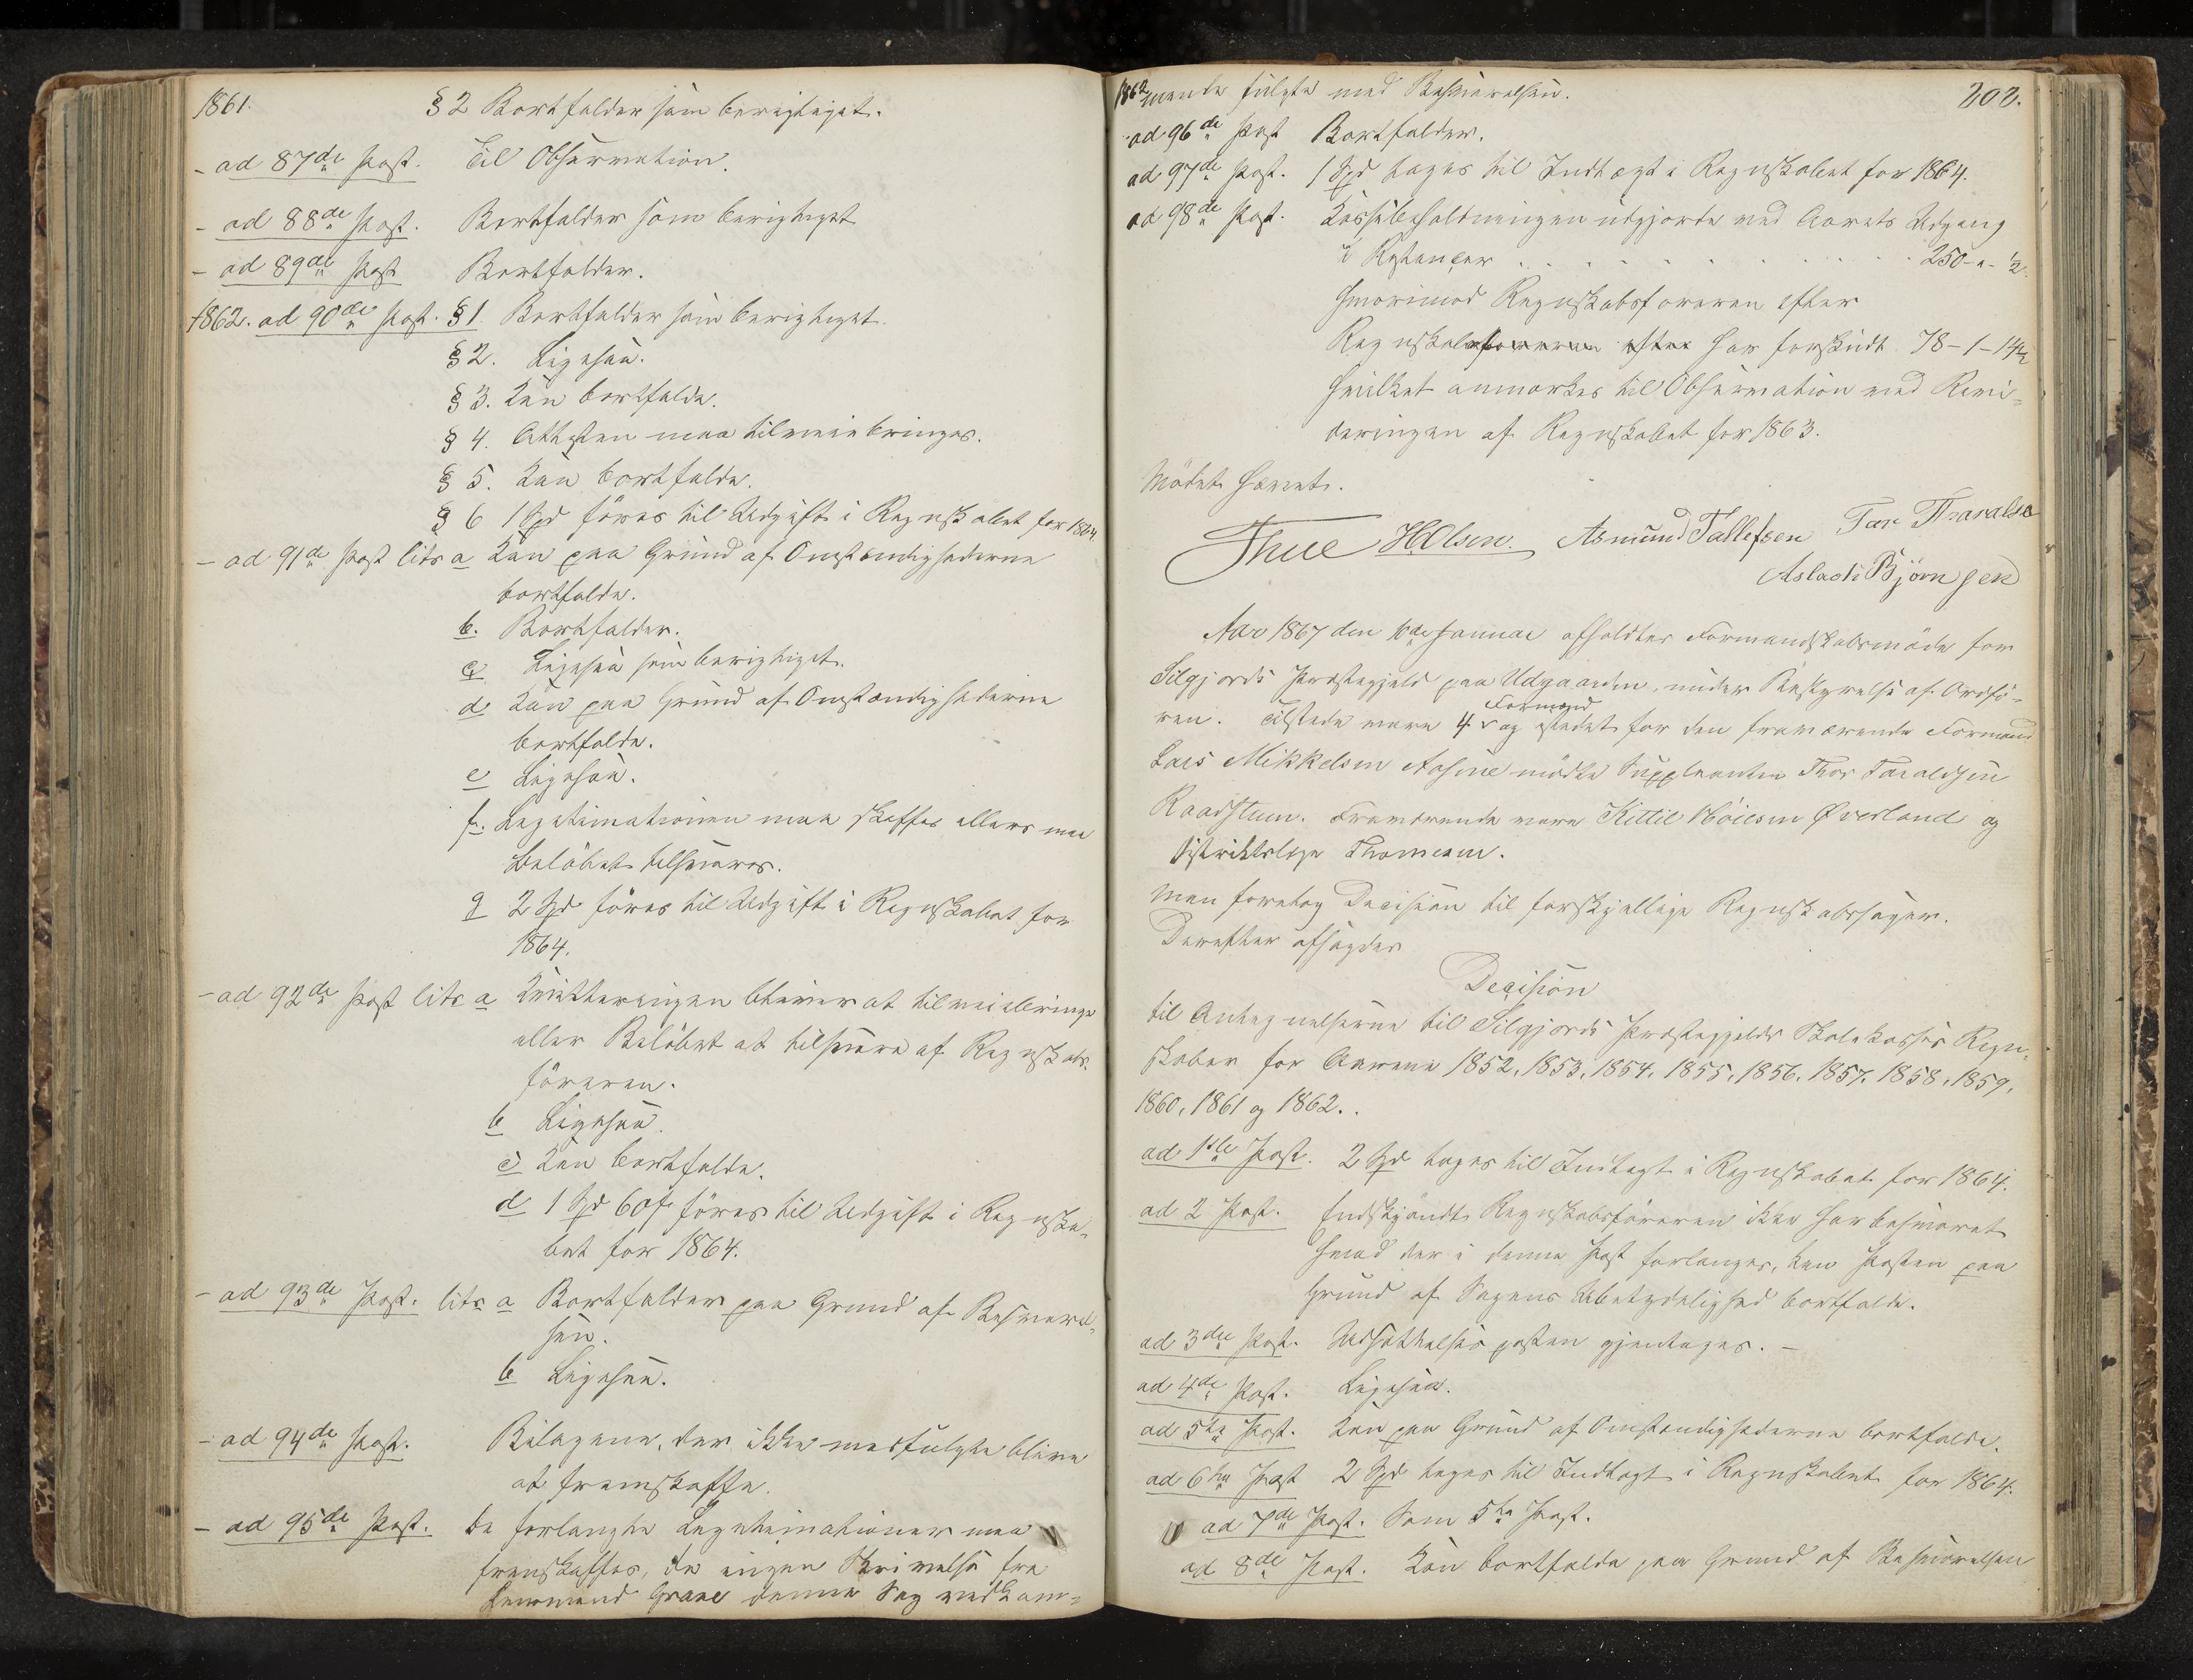 1861. § 2 Bortfalder som berigtiget.
- ad 87de Post. Til Observation.
- ad 88de Post. Bortfalder som berigtiget
- ad 89de Post Bortfalder.
1862. ad 90de Post. § 1. Bortfalder som berigtiget.
§ 2. Ligesaa.
§ 3. Kan bortfalde.
§ 4. Attesten maa tilveiebringes.
§ 5. Kan bortfalde.
§ 6 1 Spd föres til Udgift i Regnskabet for 1864
- ad 91de Post litr a Kan paa Grund af Omstændighederne
bortfalde.
b. Bortfalder.
c Ligesaa som berigtiget.
d Kan paa Grund af Omstændighederne
bortfalde.
e Ligesaa.
f. Legitimationen maa skaffes ellers maa
Belöbet tilsvares.
g 2 Spd föres til Udgift i Regnskabet for
1864.
- ad 92de Post litr a Qvitteringen bliver at tilveiebringe
eller Belöbet at tilsvare af Regnskabs-
föreren.
b Ligesaa.
c Kan bortfalde.
d 1 Spd 60 s föres til Udgift i Regnska-
bet for 1864.
- ad 93de Post. litr a Bortfalder paa Grund af Besvarel-
sen.
b Ligesaa.
- ad 94de Post. Bilagene, der ikke medfulgte blive
at fremskaffe.
- ad 95de Post. De forlangte Legitimationer maa
fremskaffes, da ingen Skrivelse fra
Lensmand Grave denne Sag vedkom-
1862 mende fulgte med Besvarelsen. 202.
ad 96de Post Bortfalder.
ad 97de Post. 1 Spd tages til Indtægt i Regnskabet for 1864.
ad 98de Post. Kassebeholdningen udgjorde ved Aarets Udgang
i Restancer . . . . . . . . . . . 250 - " - ½
hvorimod Regnskabsföreren efter
Regnskabsföreren efter har forskudt 78 - 1 - 14½
hvilket anmærkes til Observation ved Revi-
deringen af Regnskabet for 1863.
Mödet hævet.
Thue H.Olsen. Asmund Tallefsen Tor Tharalse
Aslach Bjørnsen
Aar 1867 den 10de Januar afholdtes Formandskabsmöde for
Silgjords Præstegjeld paa Udgaarden, under Bestyrelse af Ordfö-
ren. Tilstede vare 4 Formænd og istedet for den fraværende Formand
Lars Mikkelsen Aasine mödte Suppleanten Thor Taraldsen
Raadstum. Fraværende vare Kittil Høiesen Øverland og
Distriktslæge Thomesen.
Man foretog Decision til forskjellige Regnskabssager.
Derefter afsagdes
Decision
til Antegnelserne til Silgjords Præstegjelds Skolekasses Regn-
skaber for Aarene 1852, 1853, 1854, 1855, 1856, 1857, 1858, 1859,
1860, 1861 og 1862.
ad 1ste Post. 2 Spd tages til Indtægt i Regnskabet for 1864.
ad 2 Post. Endskjöndt Regnskabsföreren ikke har besvaret
hvad der i denne Post forlanges, kan Posten paa
Grund af Sagens Ubetydelighed bortfalde.
ad 3die Post. Udsættelsesposten gjentages. -
ad 4de Post. Ligesaa.
ad 5te Post. Kan paa Grund af Omstændighederne bortfalde.
ad 6te Post 2 Spd tages til Indtægt i Regnskabet for 1864.
ad 7de Post. Som 5te Post.
ad 8de Post. Kan bortfalde paa Grund af Besvarelsen